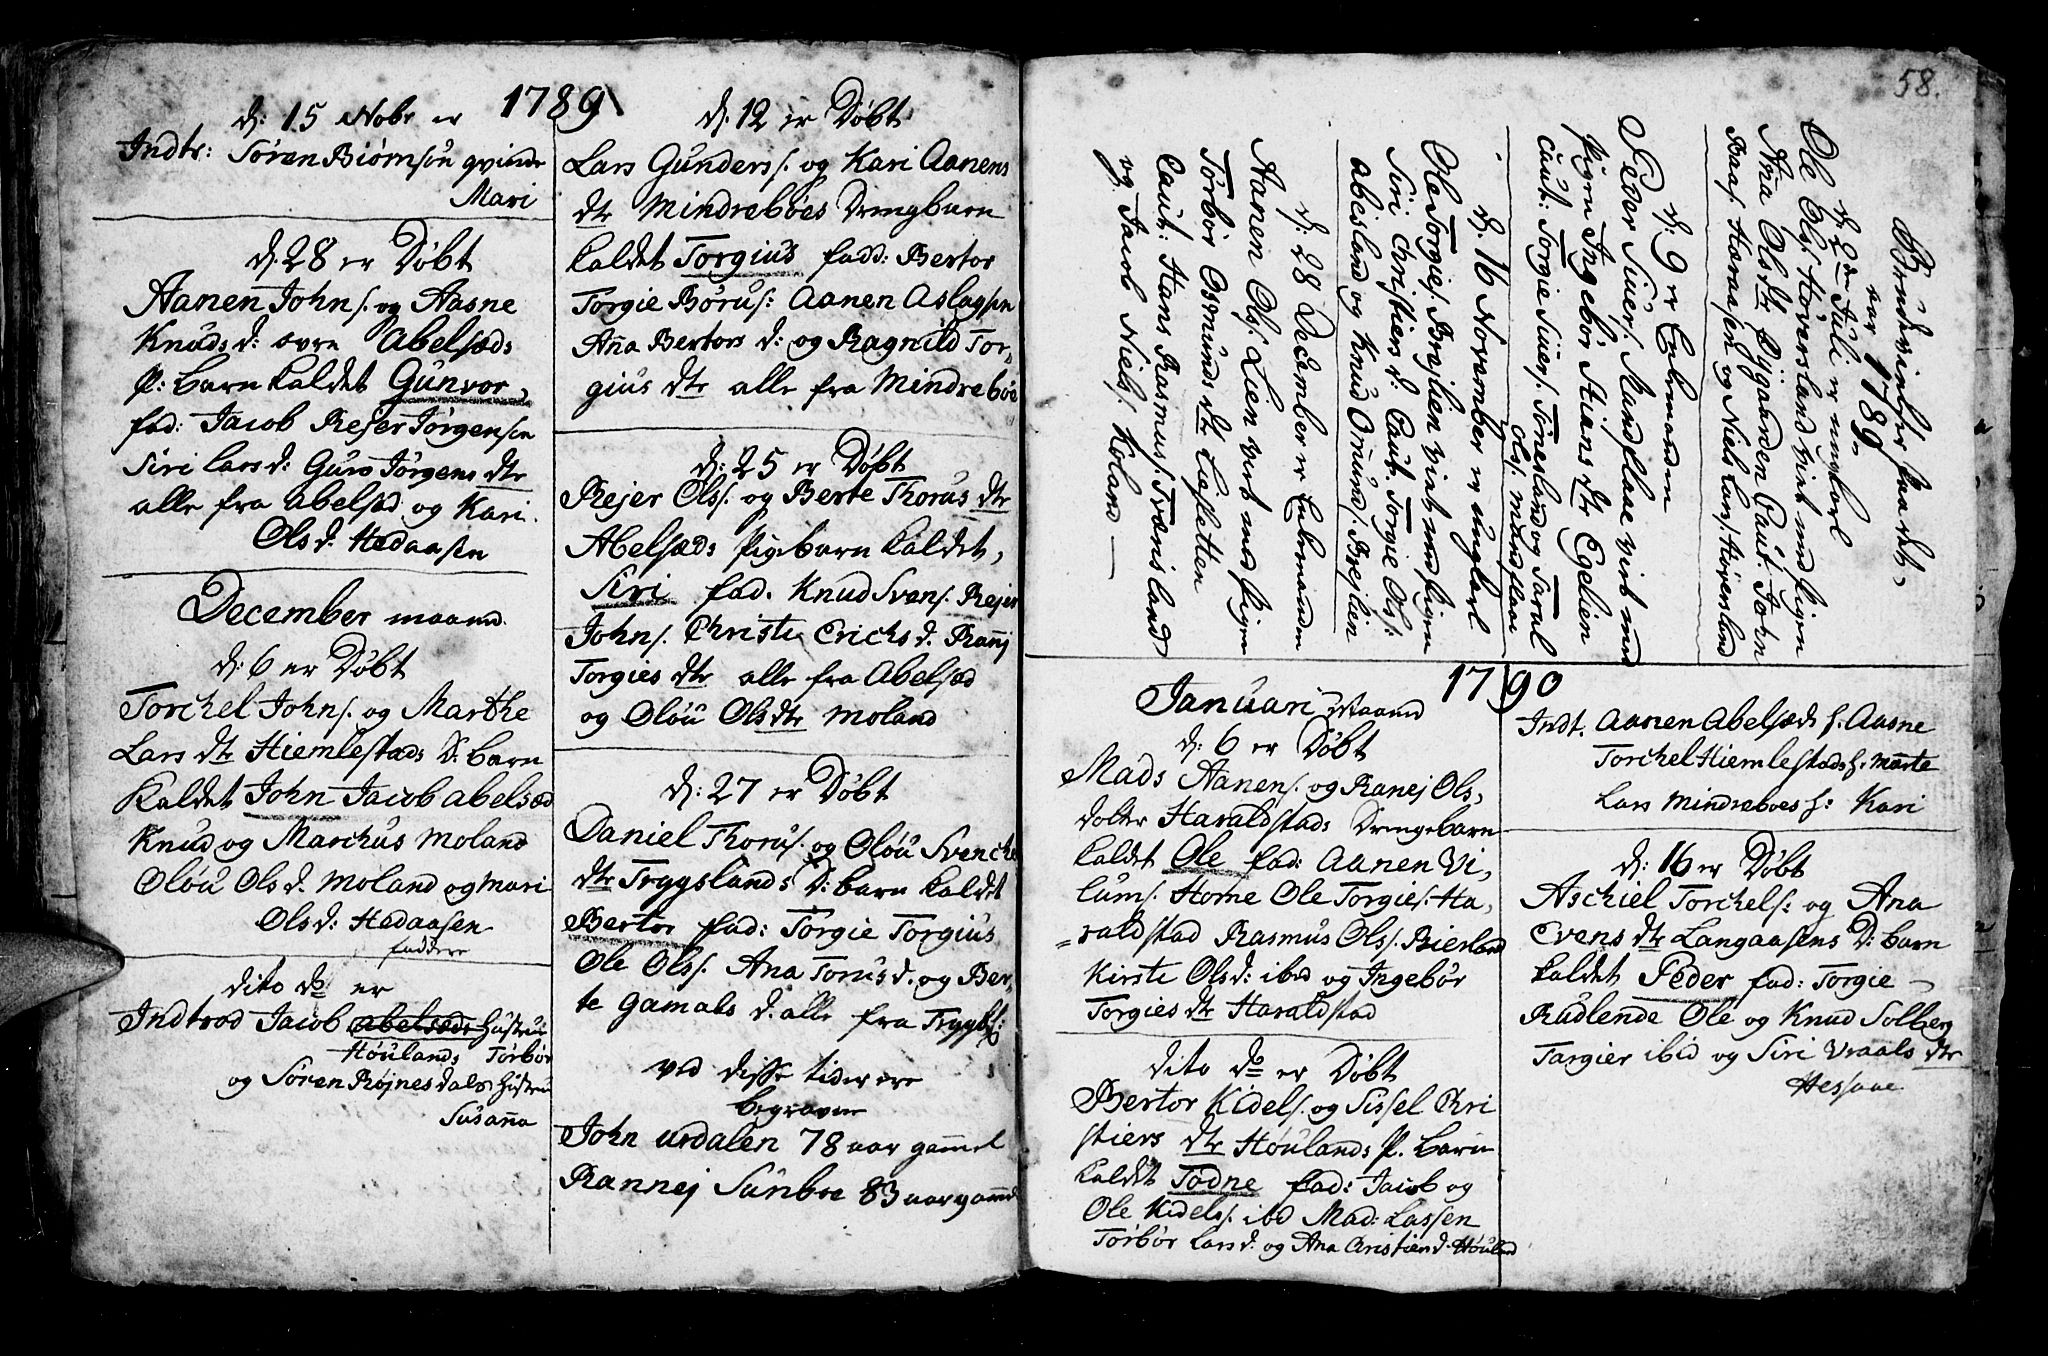 1789
d: 15 Nobr er
Indtr: Søren Biørnsøn qvinde
Mari
d: 28 er Døbt
Aanen Johns. og Aasne
Knuds d: øvre Abelsæds
P: barn kaldet Gunvor,
fad: Jacob Rejer Jørgensen
Siri Lars d: Guro Jørgens dtr
alle fra Abelsæd og Kari
Ols d: Hedaasen
December maaned
d: 6 er Døbt
Torchel Johns. og Marthe
Lars dtr Hiemlestæds D: barn
kaldet John Jacob Abelsæd
Knud og Marchus Moland
Oløu Ols d. Moland og Mari
Ols d: Hedaasen
faddere
dito do er
Indtrod Jacob Abelsæds Hustrue
Høulands Torbør
og Søren Røjnes dals Hustru
Susanna
d: 12 er Døbt
Lars Gunders. og Kari Aanens
dtr Mindreboes Drengbarn
kaldet Torgius fadd: Bertor
Torgie Børus: Aanen Aslagsen
Anna Bertors d: og Ragnild Tor-
gius dtr alle fra Mindreboe
d: 25 er Døbt
Rejer Ols. og Berte Thorus dtr
Abelsæds Pigebarn kaldet,
Siri fad. Knud Svens. Rejer
Johns. Christi Erichs d. Ranj
Torgies dtr alle fra Abelsæd
og Oløu Ols dtr Moland
d: 27 er Døbt
Daniel Thorus. og Oløu Svenche
dtr Tryglands D: barn kaldet
Bertor fad: Torgie Torgius
Ole Ols. Ana Torus d. og Ber-
te Gamals d. alle fra Trygsl:
ved disse tider ere
begraven
John Urdalen 78 aar gamel
Rannej Sunboe 83 aar gamel
58.
Brudevielser Paa det
aar 1789-
d: 2den Juli er ungkarl
Ole Ols. Høversland viet med Pigen
Ana Ols dtr Byganden Caut. John
Baas. Heraasen og Niels Lars. Høversland
d: 9 er Enkemanden
Peder Sivers. Mandflaae viet med
Pigen Ingebør Stians dtr Egelien
Caut: Torgie Sivers. Tonesland og Taral
Ols. Mandflaae
d: 16 November er ungkarl
Ole Torgies. Brejlien viet med Pigen
Siri Christiers d. Caut. Torgie Ols:
Abesland og Knud Omunds. Brejlien
d: 28 December er Enkemanden
Aanen Ols. Lien viet med Pigen
Torbør Osmunds dtr Lejletten
Caut: Hans Rasmus. Tvænsland
og Jacob Niels. Koland —
1790
Januari Maaned
d: 6 er Døbt
Mads Aanens. og Ranej Ols,
dotter Haraldstads Drengebarn
kaldet Ole fad: Aanen Vi,
lums. Horne Ole Torgies. Ha,
raldstad Rasmus Ols. Bierland
Kirsti Ols d: ibid og Ingebør
Torgies dtr Haraldstad
dito do er Døbt
Bertor Kidels. og Sissel Chri
stiers dtr Høulands P. barn
kaldet Todne fad: Jacob og
Ole Kidels. ibd Mad: Lassen
Torbør Lars d: og Ana Cristien d. Høuland
Indt. Aanen Abelsæds h. Aasne
Torchel Hiemlestads h. Marte
Lars Mindreboes h: Kari
d: 16 er Døbt
Aschiel Torchels: og Ana
Evens dtr Langaasens D: barn
kaldet Peder fad: Torgie
Rudlende Ole og Knud Solberg
Targier ibid og Siri Vraals dtr
Hessaae